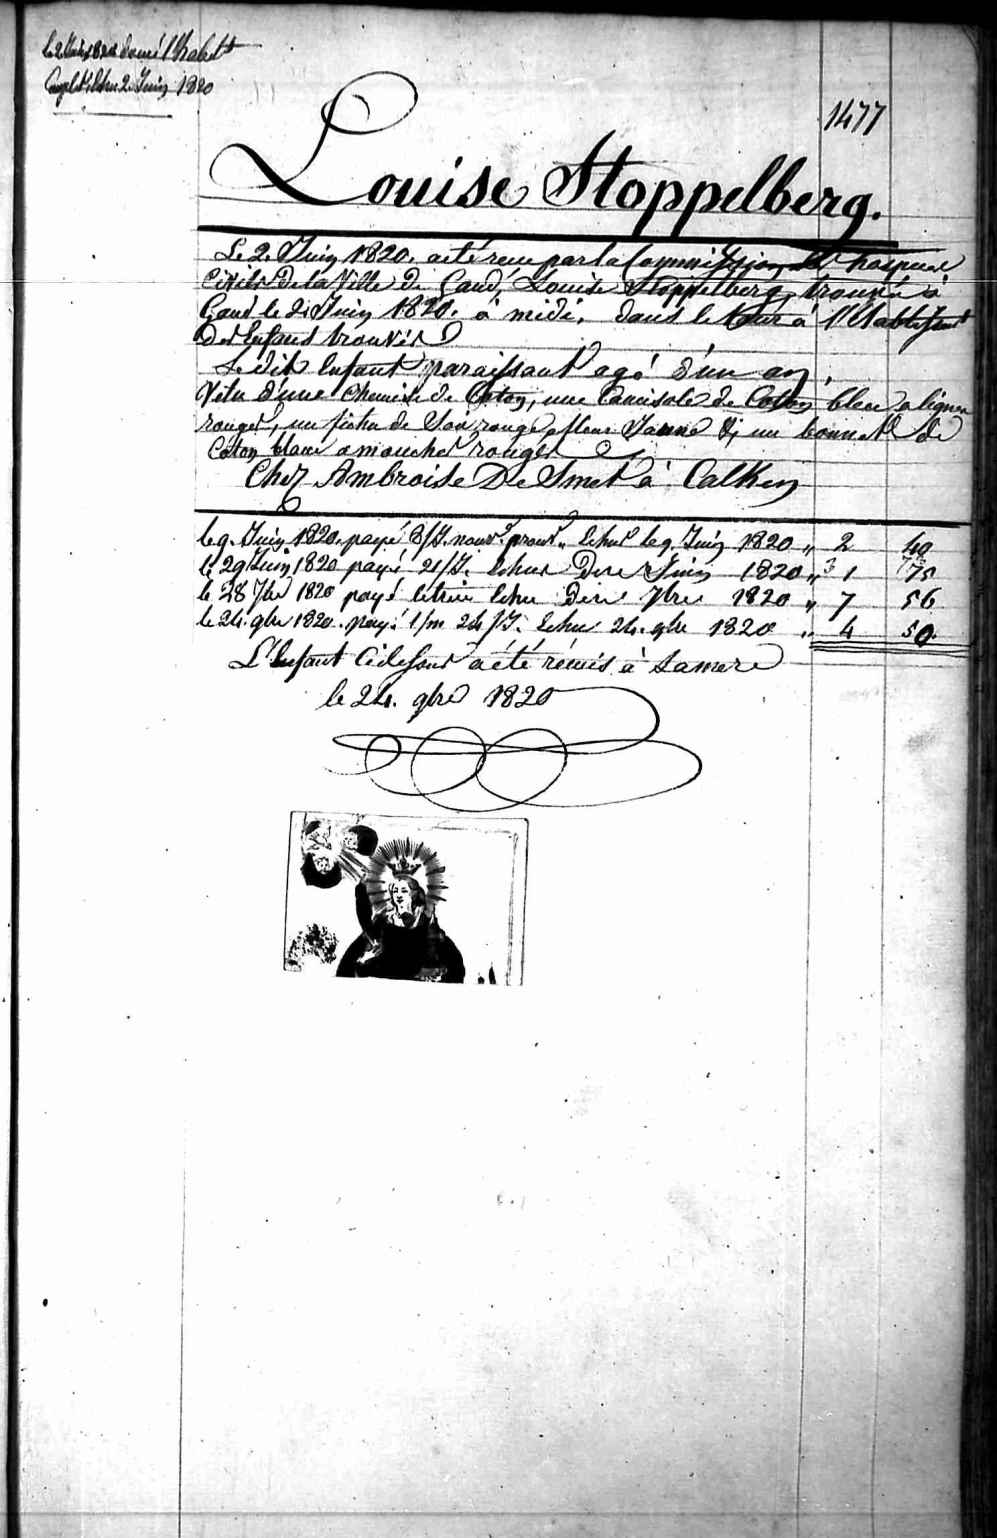 le 2 Juin 1820 donné l'habillt
Complet échu 2. Juin 1820
1477
Louise Stoppelberg.
Le 2. Juin 1820. a été reçue par la Commission des hospices
Civils de la Ville de Gand, Louise Stoppelberg, trouvée à
Gand le 2. Juin 1820. à midi, dans le tour à l'Etablissemt
des Enfans trouvés
Le dit Enfant paraissant agé d'un an,
Vetu d'une Chemise de Coton, une Camisole de Coton bleu a lignes
rouges, un fichu de Soie rouge a fleur Jaune &, un bonnet de
Coton blanc a mouches rouges
Chez Ambroise De Smet à Calken
le 9. Juin 1820. payé 8/J. nour. prov. echus le 9. Juin 1820 „ 2 40
le 29 Juin 1820 payé 21/J. echus Dere Juin 1820 „ 1 75
le 28 7bre 1820 payé letrim echu Dere 7bre 1820 „ 7 56
le 24. 9bre 1820. payé 1/m 24/J. echu 24. 9bre 1820 „ 4 50.
L'Enfant Cidessus a été remis à Samere
le 24. 9bre 1820